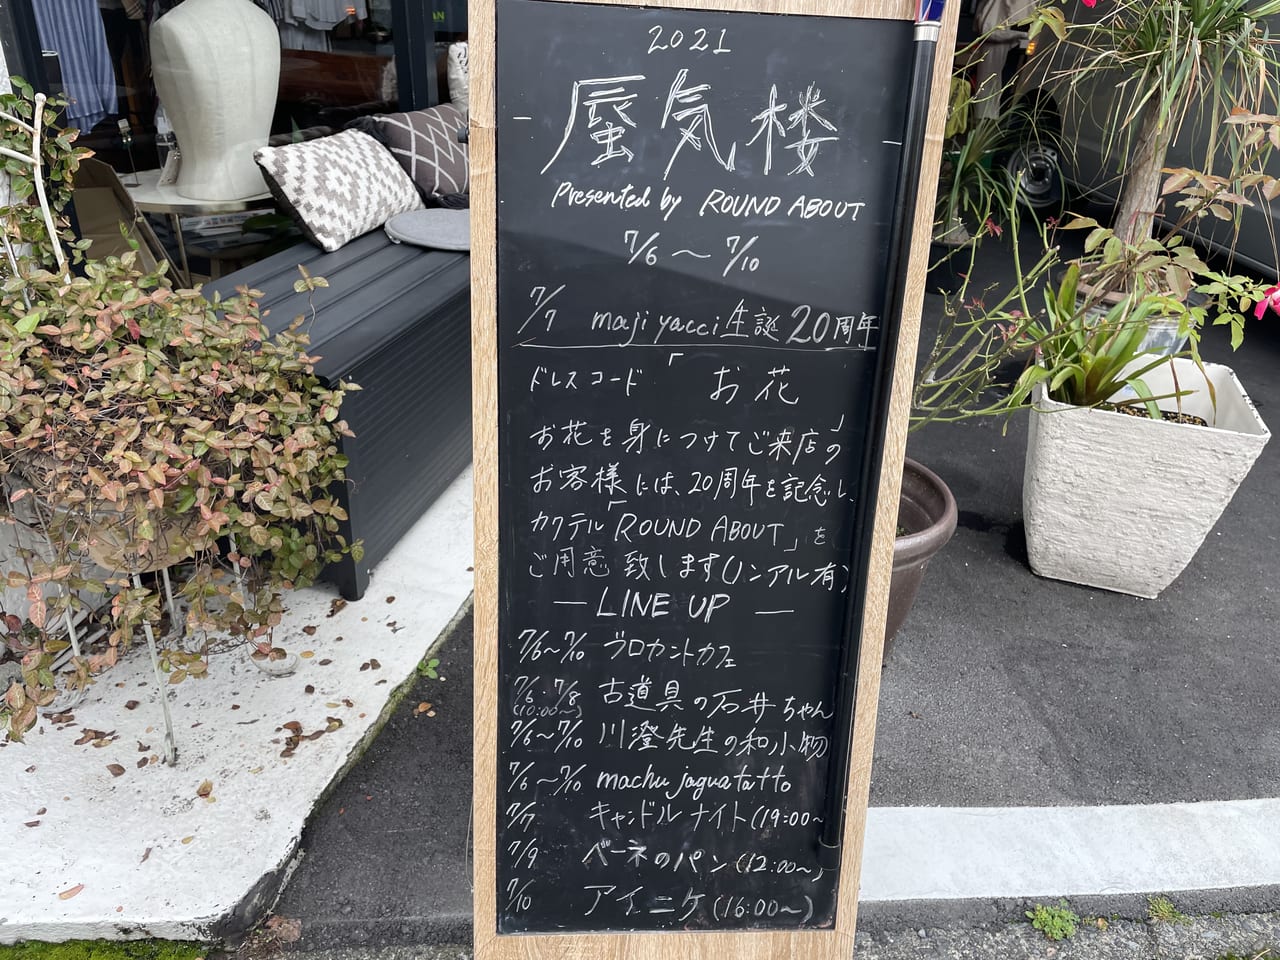 2021
- 蜃気楼 -
Presented by ROUND ABOUT
7/6 〜 7/10
7/7 majiyacci 生誕 20周年
ドレスコード「お花」
お花を身につけてご来店の
お客様には、20周年を記念し、
カクテル「ROUND ABOUT」を
ご用意致します(ノンアル有)
― LINE UP ―
7/6〜7/10 ブロカントカフェ
7/6・7/8 古道具の石井ちゃん
(10:00〜)
7/6〜7/10 川澄先生の和小物
7/6〜7/10 machu jaguatatto
7/7 キャンドルナイト(19:00〜
7/9 ベーネのパン(12:00〜)
7/10 アイニケ(16:00〜)